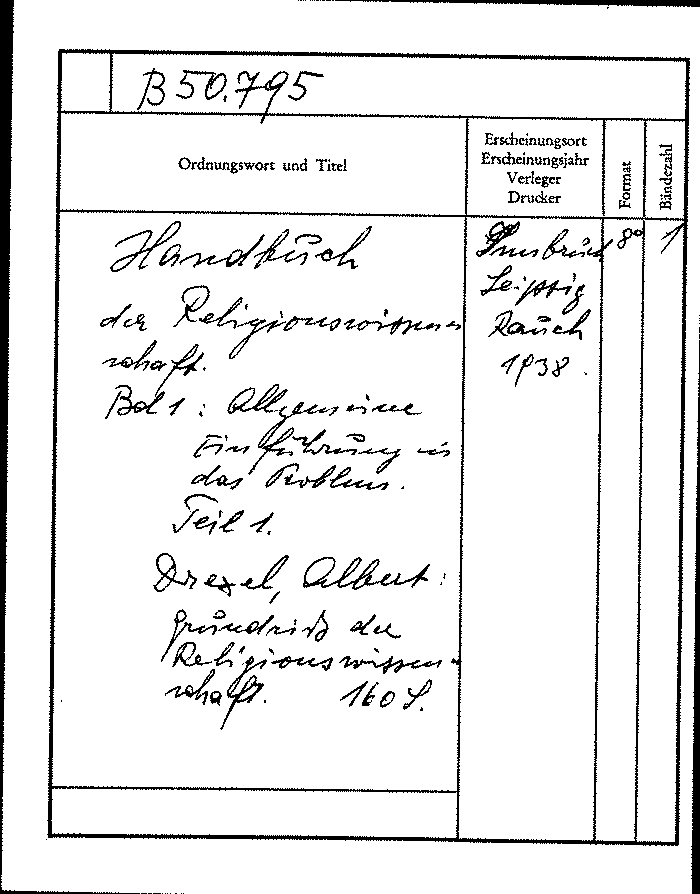 B 50.795
Ordnungswort und Titel
Erscheinungsort
Erscheinungsjahr
Verleger
Drucker
Format
Bändezahl
Handbuch
der Religionswissen-
schaft.
Bd 1 : Allgemeine
Einführung in
das Problem.
Teil 1.
Drexel, Albert :
Grundriß der
Religionswissen-
schaft. 160 S.
Innsbruck
Leipzig
Rauch
1938.
8°
1